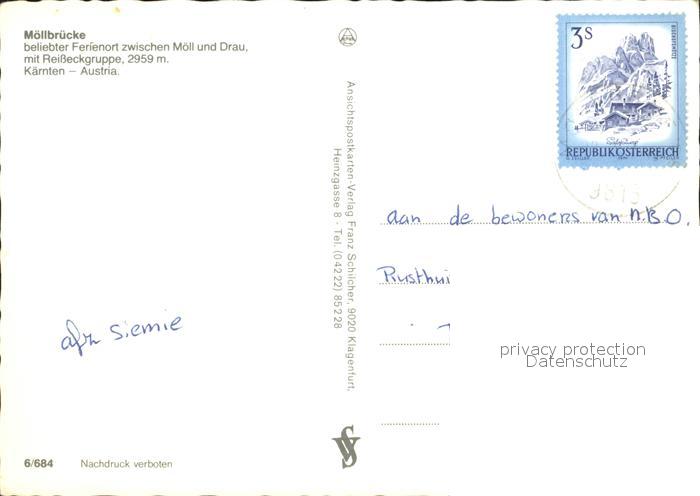 Möllbrücke
beliebter Ferienort zwischen Möll und Drau,
mit Reißeckgruppe, 2959 m.
Kärnten – Austria.
Ansichtspostkarten-Verlag Franz Schilcher, 9020 Klagenfurt,
Heinzgasse 8 · Tel. (04222) 85228
3S
REPUBLIK ÖSTERREICH
aan de bewoners van N.B.O.
Rusthui
afz Siemie
privacy protection
Datenschutz
6/684 Nachdruck verboten